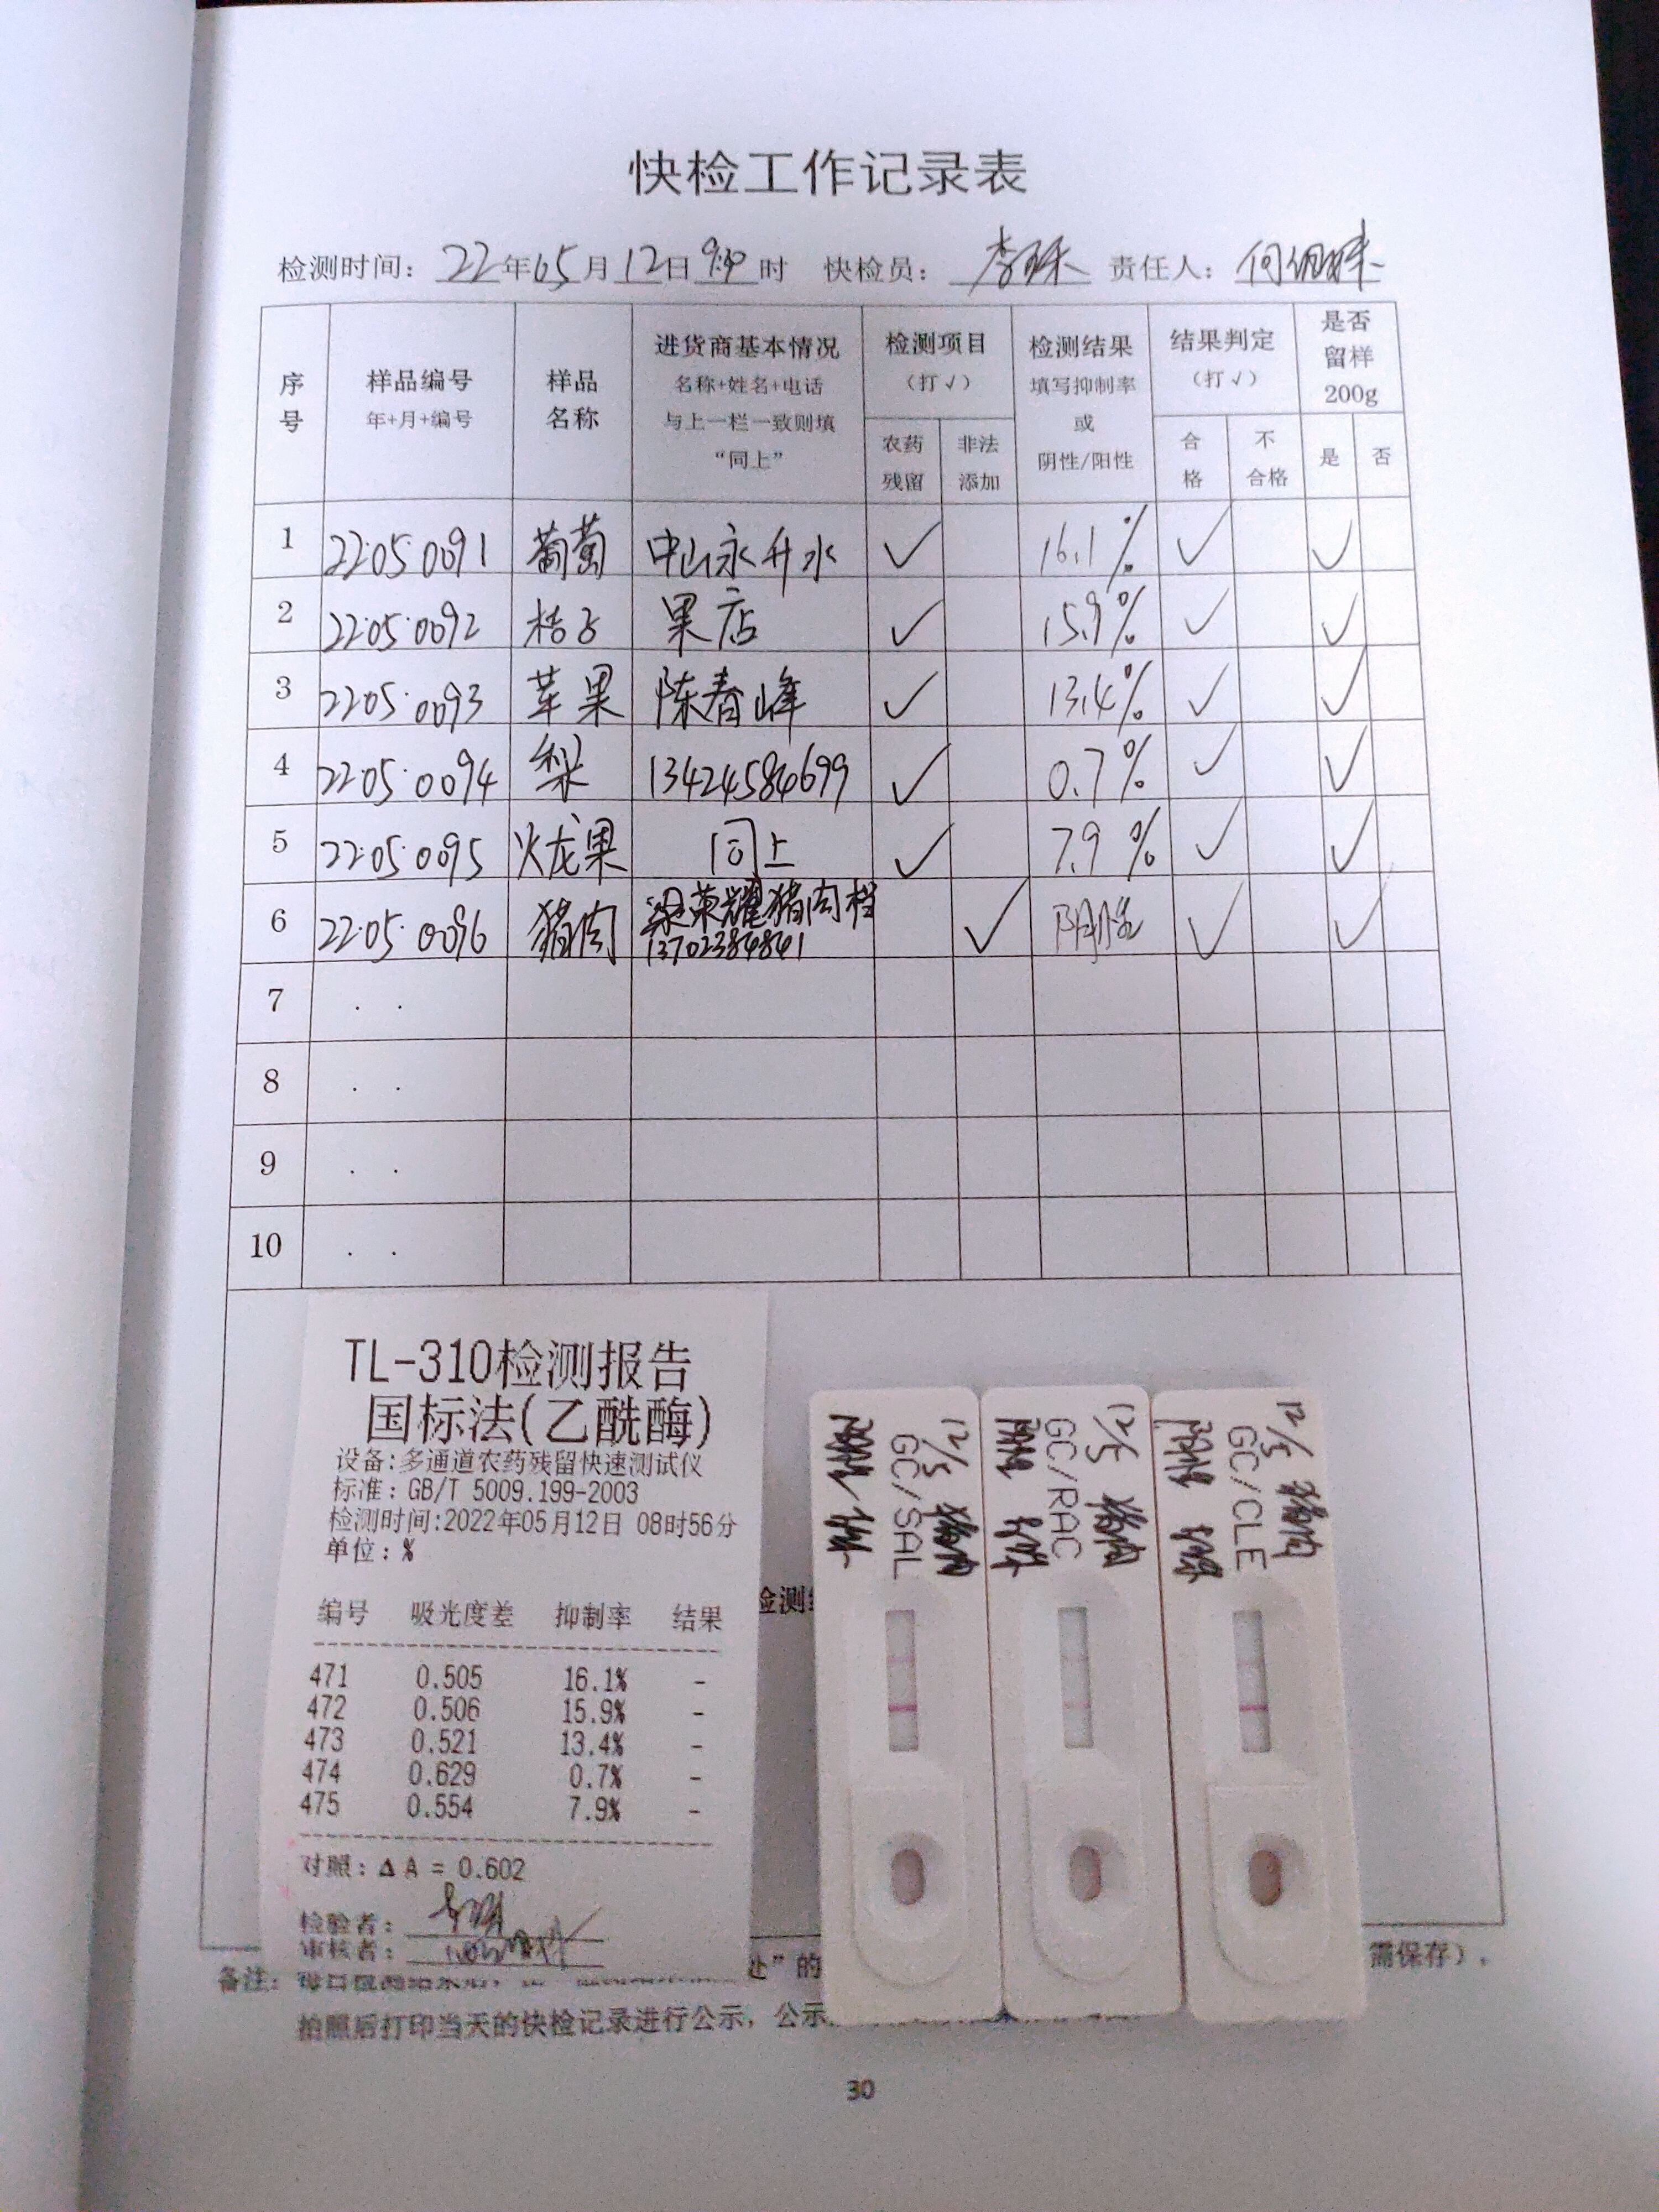 快检工作记录表
检测时间: 22年05月12日9:40时 快检员: 李 责任人: 何
序号 样品编号 年+月+编号 样品名称 进货商基本情况 名称+姓名+电话 与上一栏一致则填“同上” 检测项目(打√) 农药残留 非法添加 检测结果 填写抑制率或阴性/阳性 结果判定(打√) 合格 不合格 是否留样200g 是 否
1 22·05·0091 葡萄 中山永升水 ✓ 16.1% ✓ ✓
2 22·05·0092 桔子 果店 ✓ 15.9% ✓ ✓
3 22·05·0093 苹果 陈春峰 ✓ 13.4% ✓ ✓
4 22·05·0094 梨 13424584699 ✓ 0.7% ✓ ✓
5 22·05·0095 火龙果 同上 ✓ 7.9% ✓ ✓
6 22·05·0096 猪肉 梁荣耀猪肉档 ✓ 阴性 ✓ ✓
7 . .
8 . .
9 . .
10 . .
TL-310检测报告
国标法(乙酰酶)
设备:多通道农药残留快速测试仪
标准: GB/T 5009.199-2003
检测时间:2022年05月12日 08时56分
单位: %
编号 吸光度差 抑制率 结果
471 0.505 16.1% -
472 0.506 15.9% -
473 0.521 13.4% -
474 0.629 0.7% -
475 0.554 7.9% -
对照: Δ A = 0.602
检验者:
审核者:
12/5 猪肉
GC/SAL
12/5 猪肉
GC/RAC
12/5 猪肉
GC/CLE
检测
备注:
处”的
需保存).
拍照后打印当天的快检记录进行公示, 公示
30